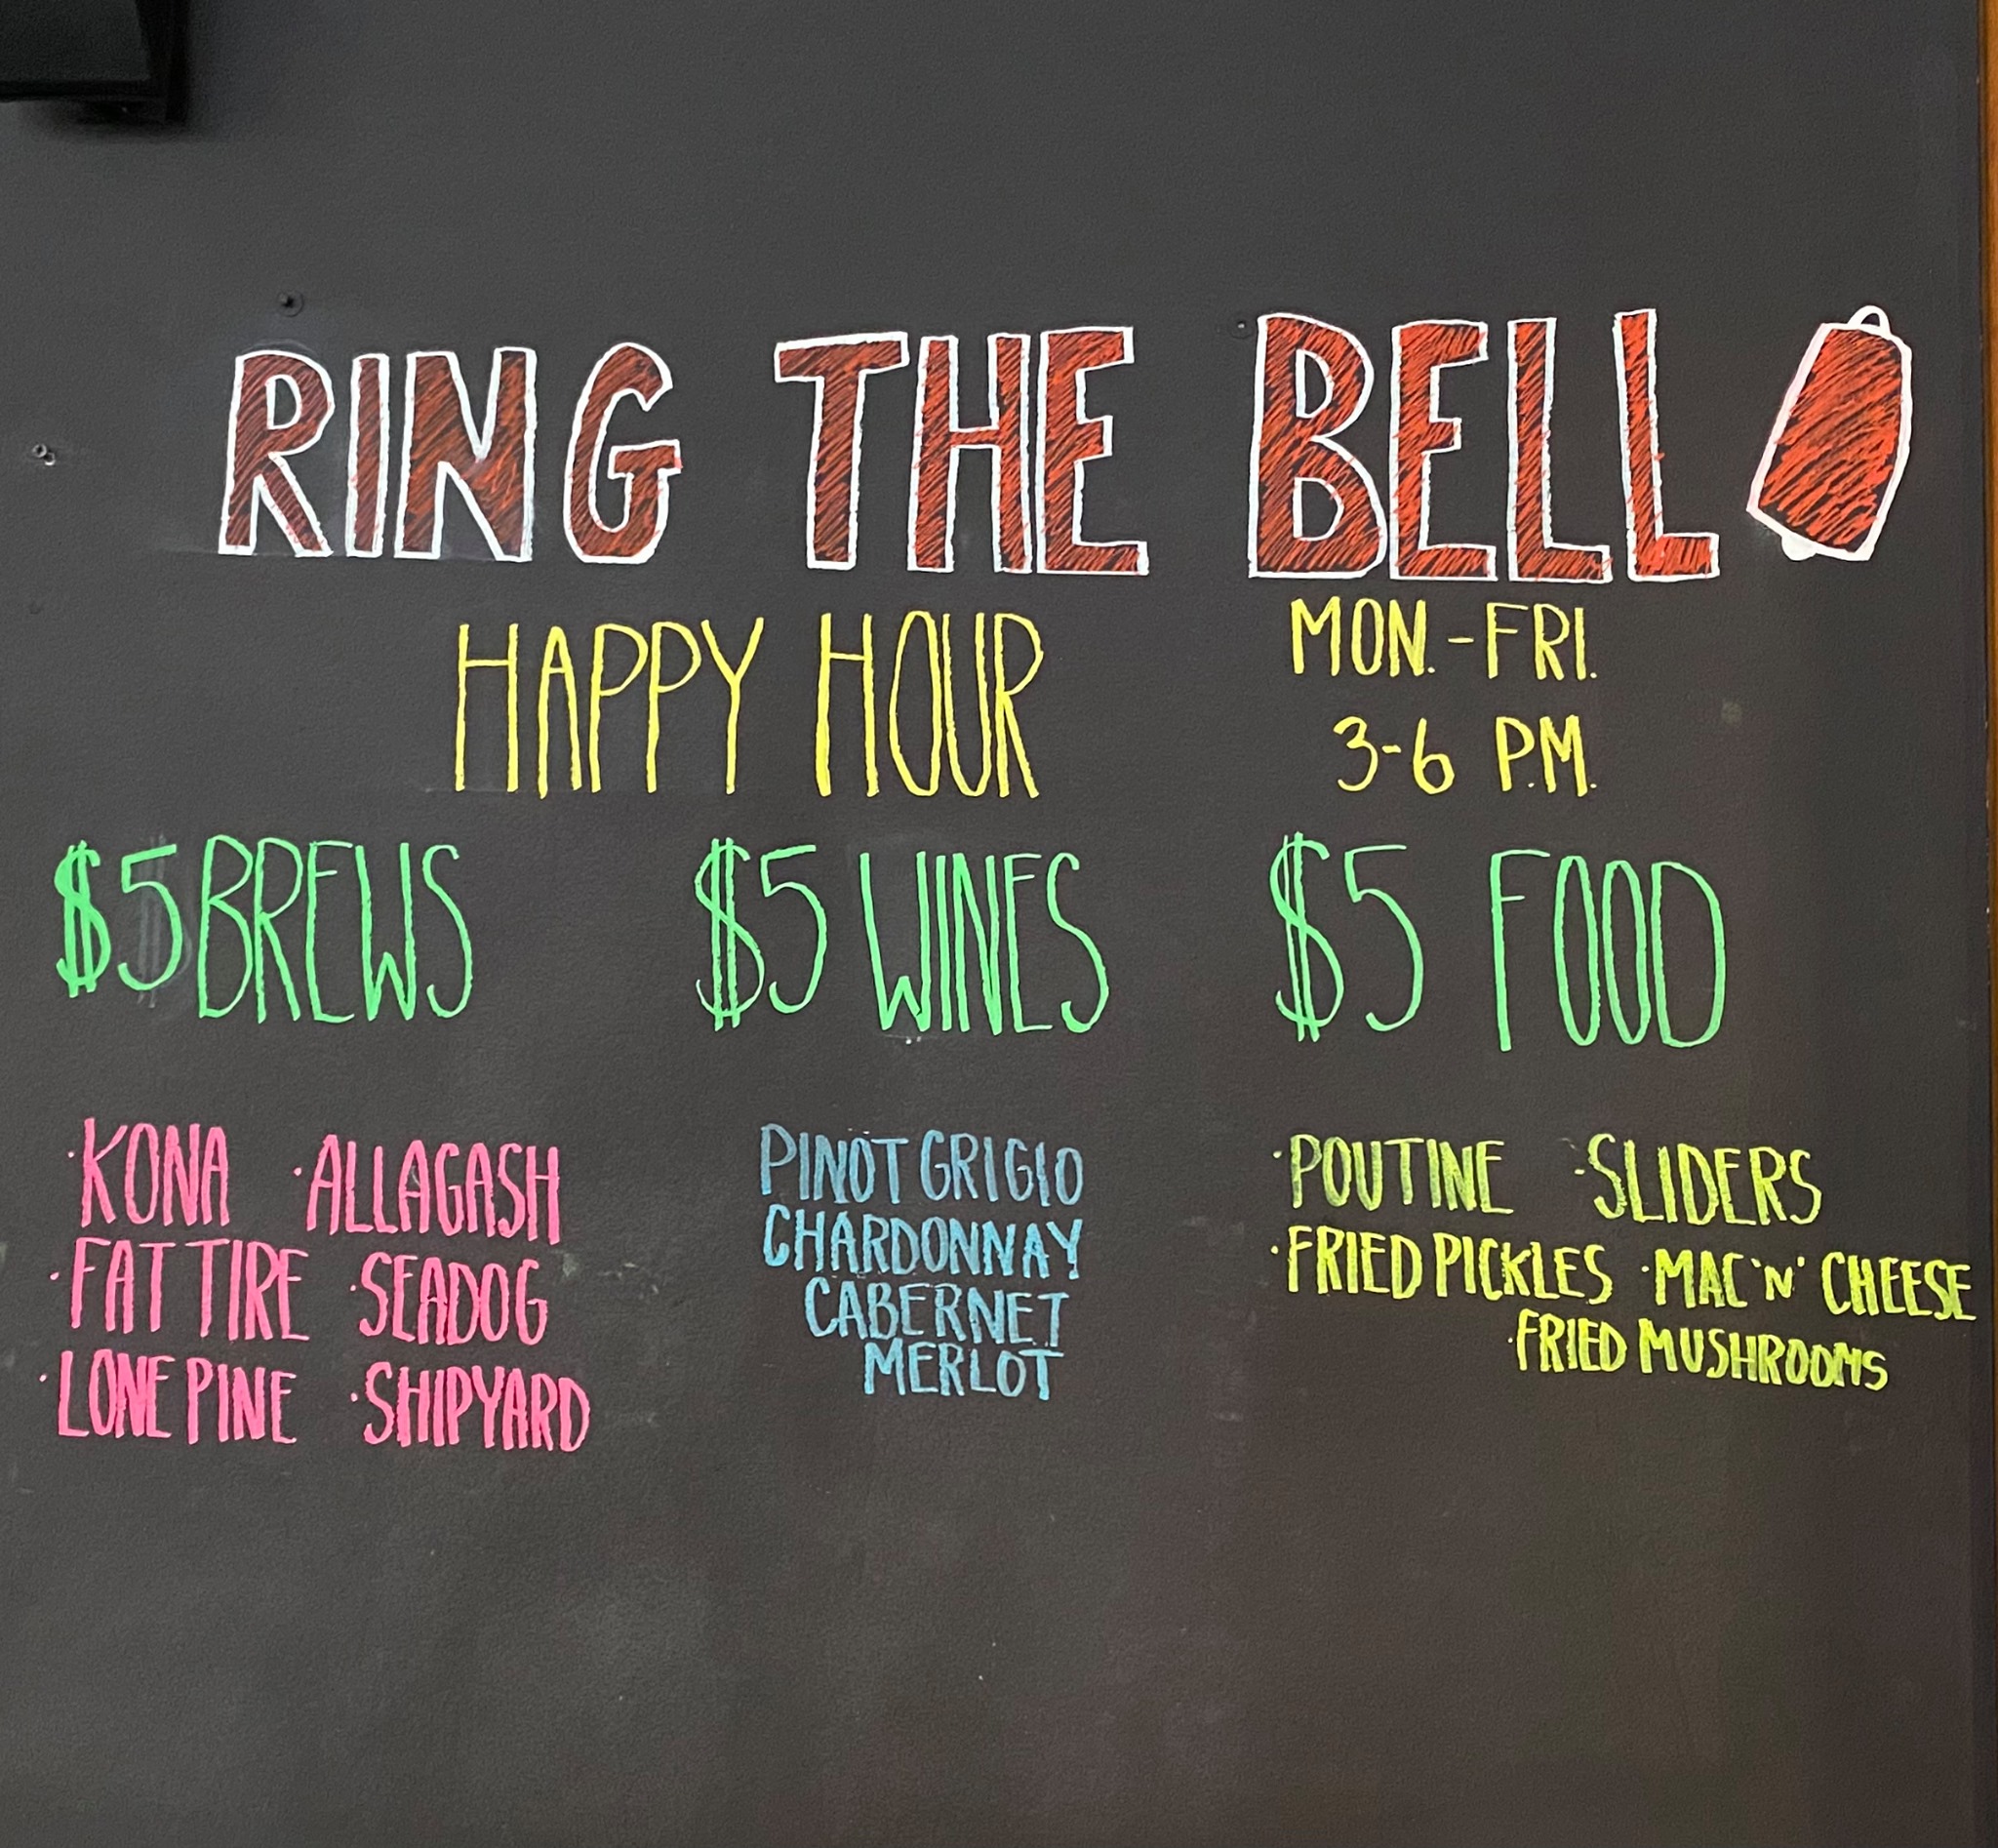 RING THE BELL
HAPPY HOUR
MON.-FRI.
3-6 P.M.
$5 BREWS
·KONA ·ALLAGASH
·FAT TIRE ·SEADOG
·LONE PINE ·SHIPYARD
$5 WINES
PINOT GRIGIO
CHARDONNAY
CABERNET
MERLOT
$5 FOOD
·POUTINE ·SLIDERS
·FRIED PICKLES ·MAC 'N' CHEESE
·FRIED MUSHROOMS